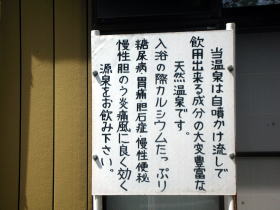 当温泉は自噴かけ流しで
飲用出来る成分の大変豊富な
天然温泉です。
入浴の際カルシウムたっぷり
糖尿病胃痛胆石症慢性便秘
慢性胆のう炎痛風に良く効く
源泉をお飲み下さい。